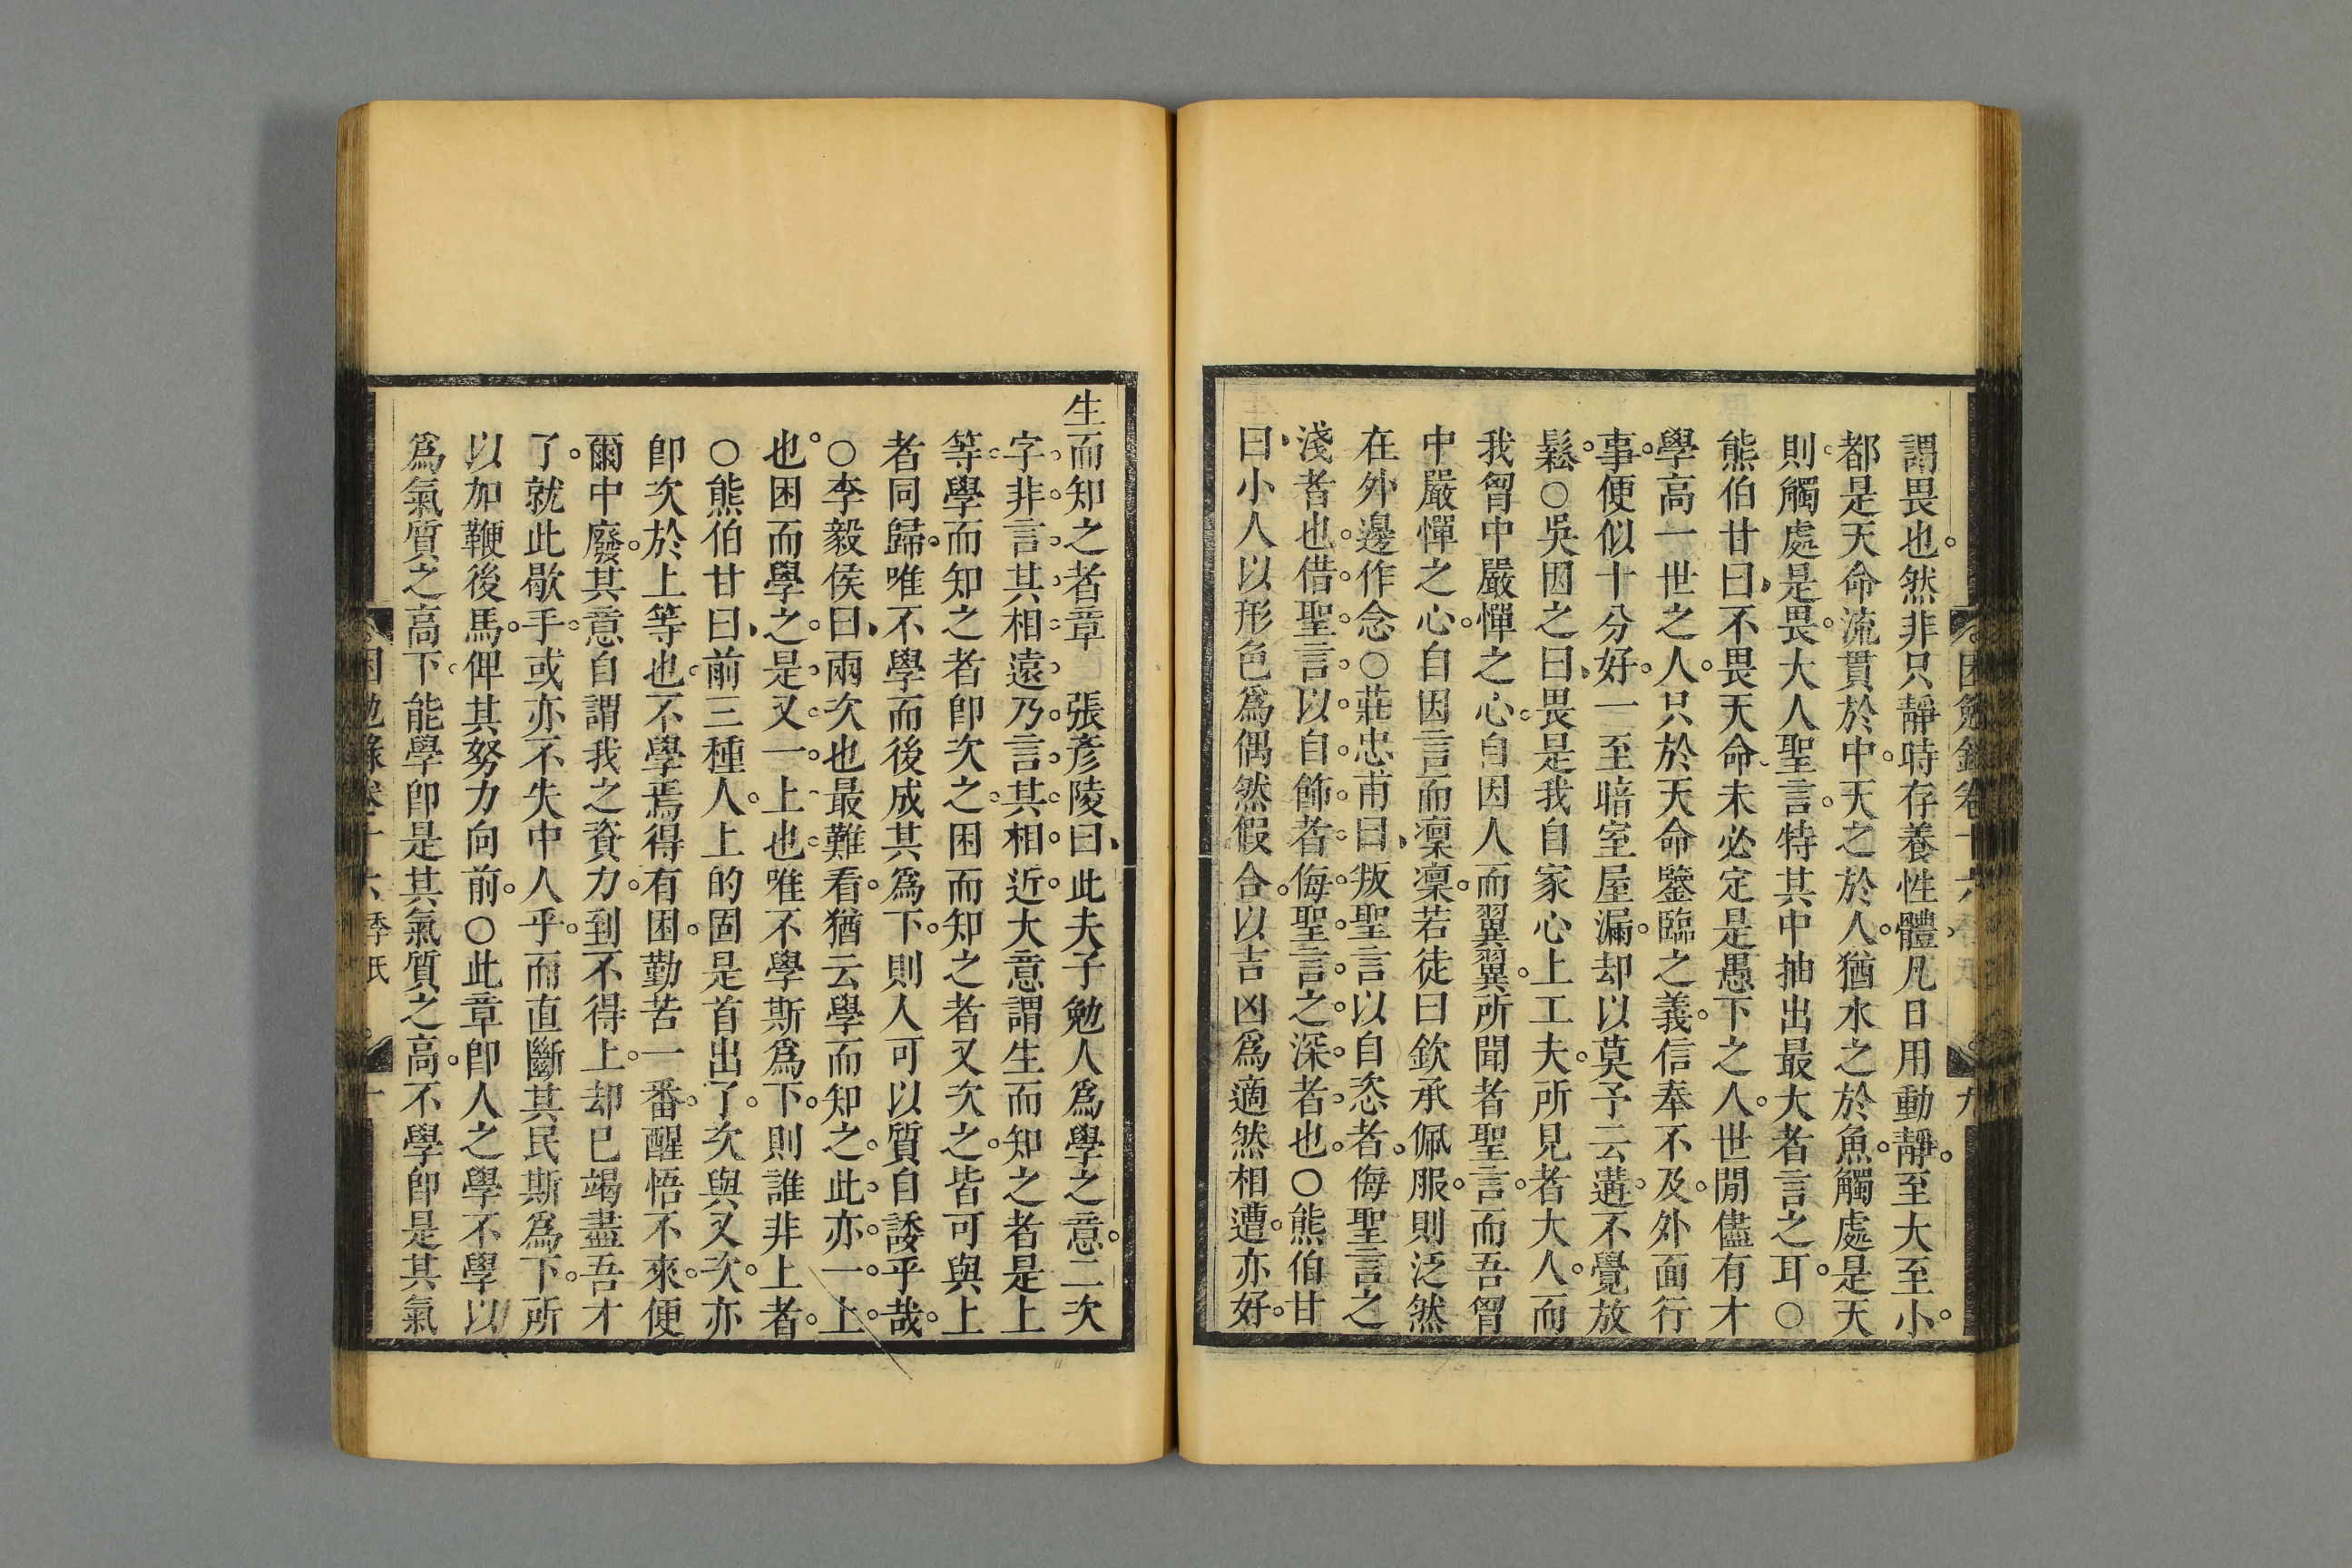 謂畏也。然非只靜時存養性體、凡日用動靜。至大至小。
都是天命流貫於中。天之於人。猶水之於魚。觸處是天
則。觸處是畏。大人聖言。特其中抽出最大者言之耳。○
熊伯甘曰、不畏天命、未必定是愚下之人。世閒儘有才
學高一世之人。只於天命鑒臨之義。信奉不及。外面行
事。便似十分好。一至暗室屋漏。却以莫予云遘。不覺放
鬆。○吳因之曰、畏是我自家心上工夫。所見者大人。而
我胷中嚴憚之心。自因人而翼翼。所聞者聖言。而吾胷
中嚴憚之心。自因言而凜凜。若徒曰欽承佩服。則泛然
在外邊作念。○莊忠甫曰、叛聖言以自恣者、侮聖言之
淺者也。借聖言以自飾者。侮聖言之深者也。○熊伯甘
曰、小人以形色爲偶然假合。以吉凶爲適然相遭。亦好。
困勉錄卷十六 季氏 九
生而知之者章 張彥陵曰、此夫子勉人爲學之意。二次
字。非言其相遠。乃言其相近。大意謂生而知之者是上
等。學而知之者卽次之。困而知之者又次之。皆可與上
者同歸。唯不學而後成其爲下。則人可以質自諉乎哉。
○李毅侯曰、兩次也最難看。猶云學而知之。此亦一上
也。困而學之。是又一上也。唯不學斯爲下。則誰非上者。
○熊伯甘曰、前三種人。上的固是首出了。次與又次。亦
卽次於上等也。不學焉得有困。勤苦一番。醒悟不來。便
爾中廢。其意自謂我之資力。到不得上。却已竭盡吾才
了。就此歇手。或亦不失中人乎。而直斷其民斯爲下。所
以加鞭後馬。俾其努力向前。○此章卽人之學不學以
爲氣質之高下。能學卽是其氣質之高。不學卽是其氣
困勉錄卷十六 季氏 十